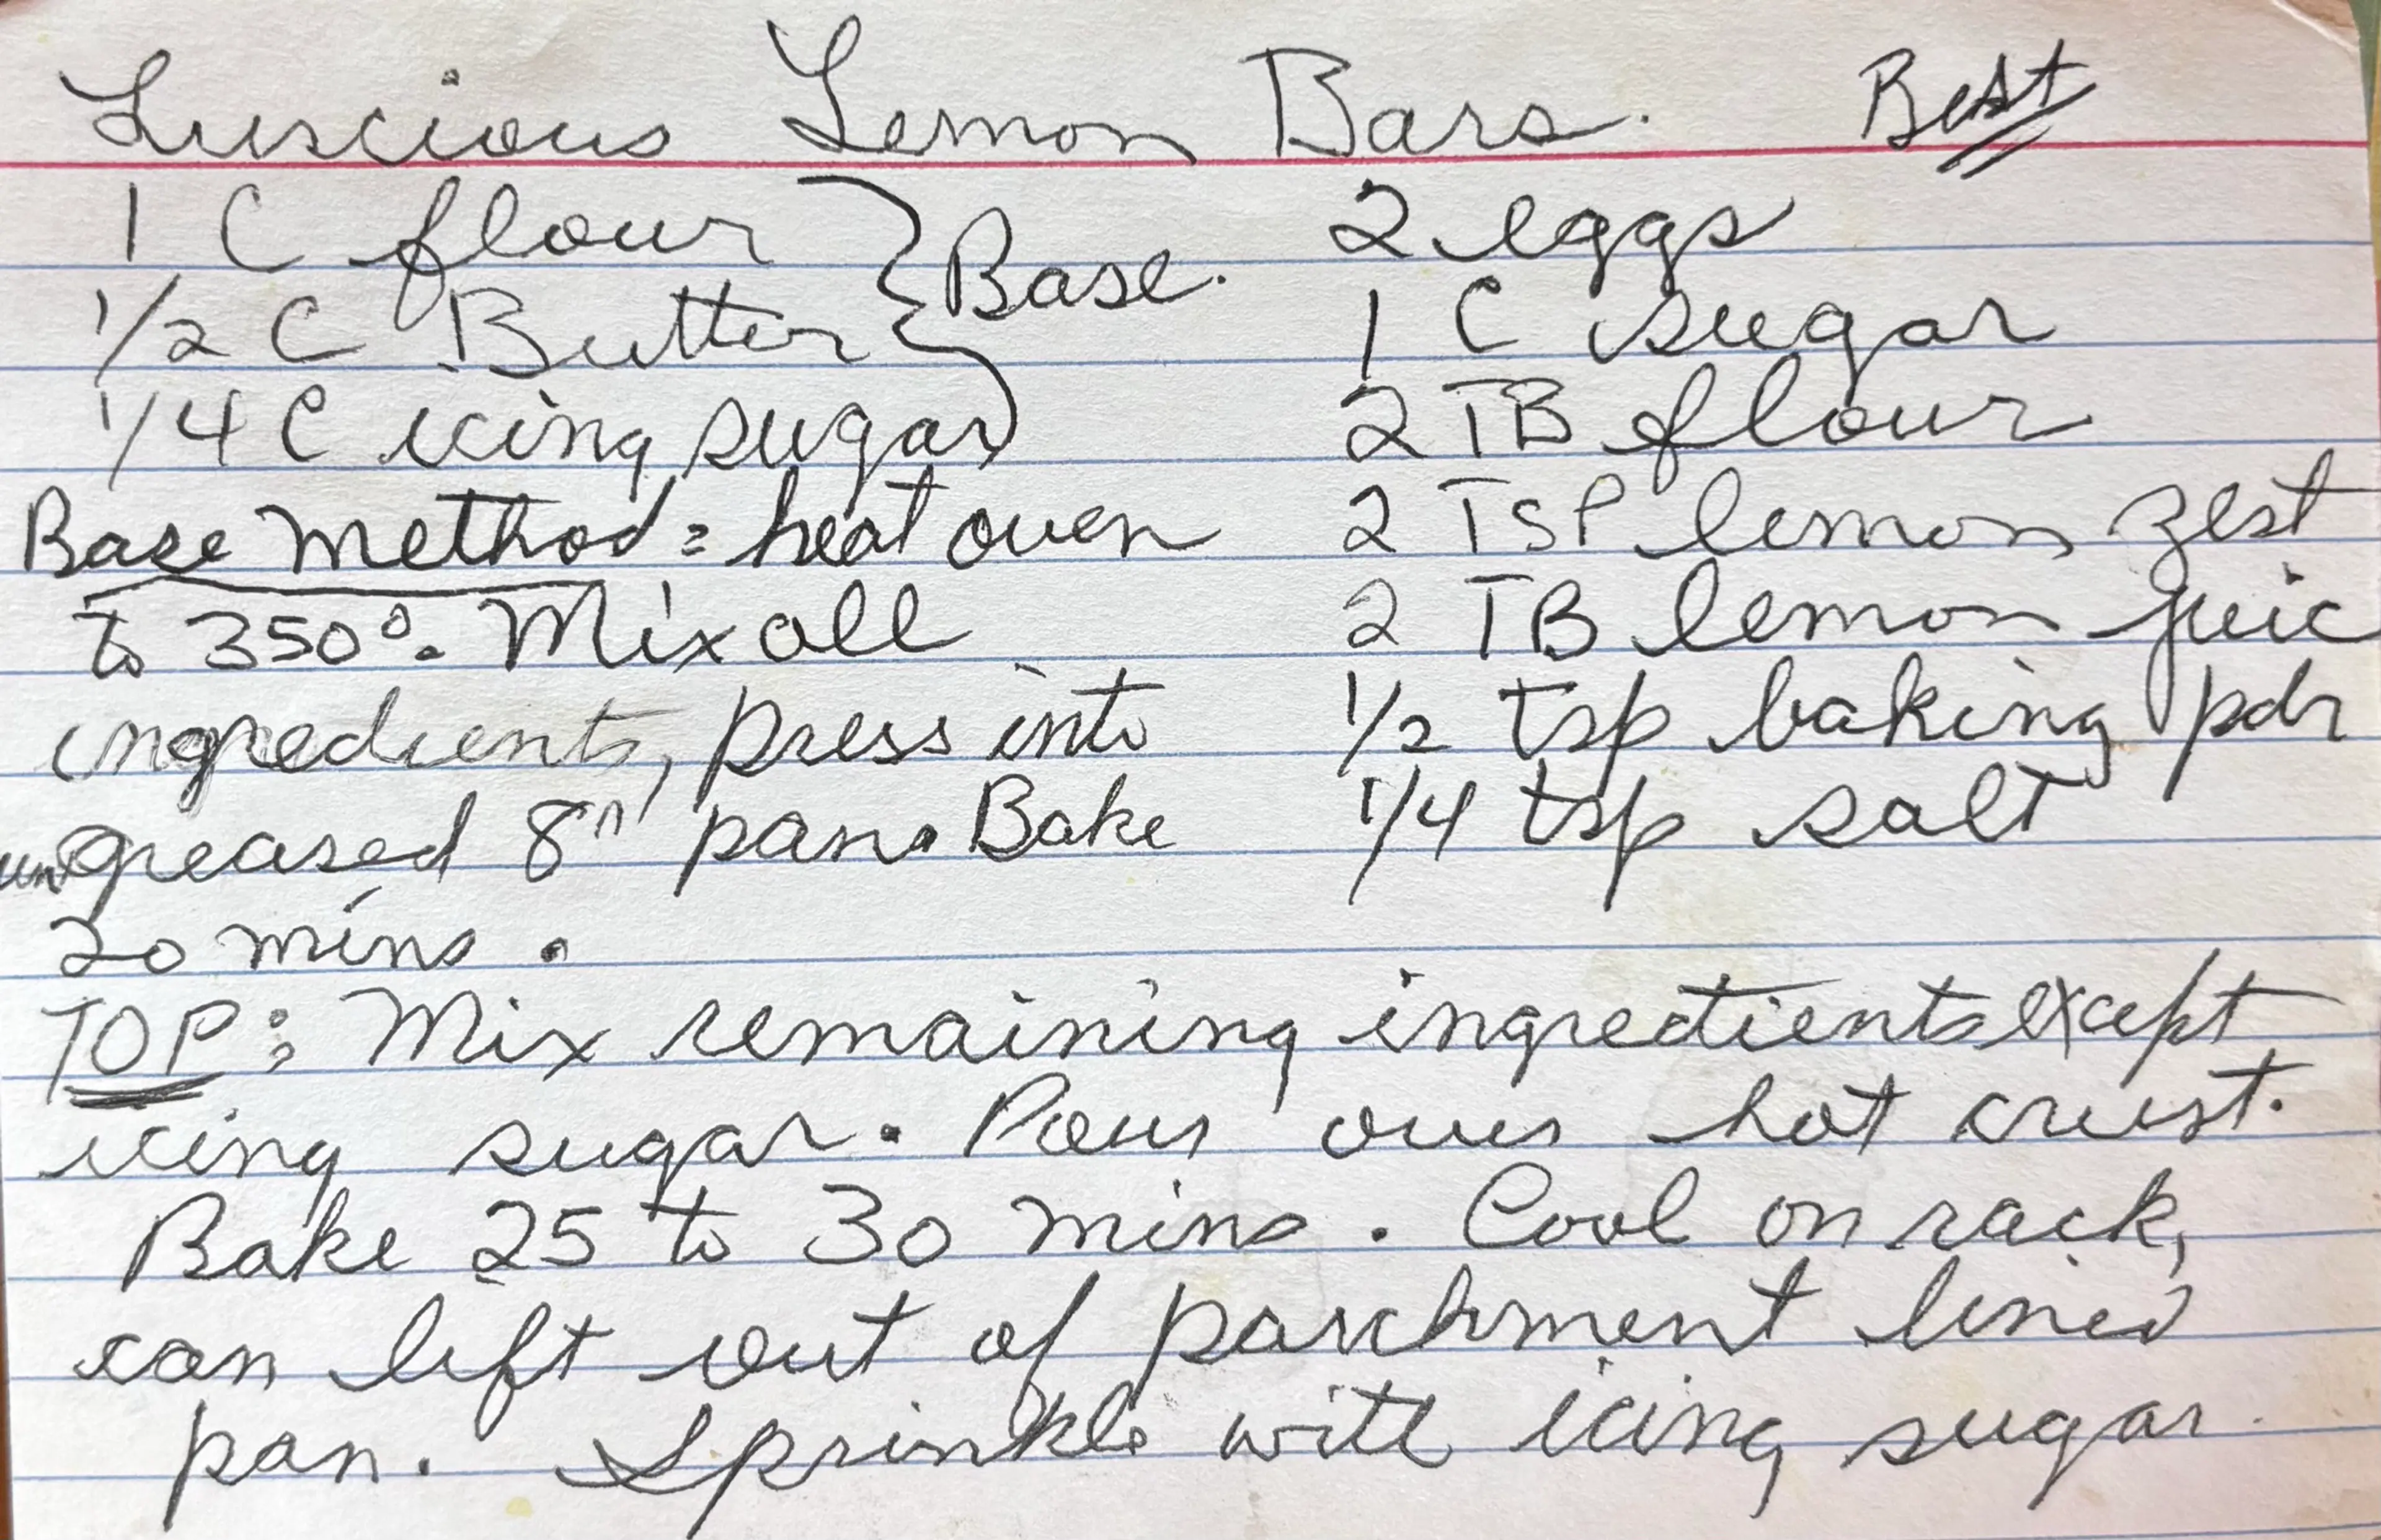 Luscious Lemon Bars. Best
1 C flour
1/2 C Butter
1/4 C icing sugar
Base.
Base method: heat oven
to 350°. Mix all
ingredients, press into
ungreased 8" pan. Bake
20 mins.
2 eggs
1 C sugar
2 TB flour
2 TSP lemon zest
2 TB lemon juic
1/2 tsp baking pdr
1/4 tsp salt
TOP: Mix remaining ingredients except
icing sugar. Pour over hot crust.
Bake 25 to 30 mins. Cool on rack,
can lift out of parchment lined
pan. Sprinkle with icing sugar.